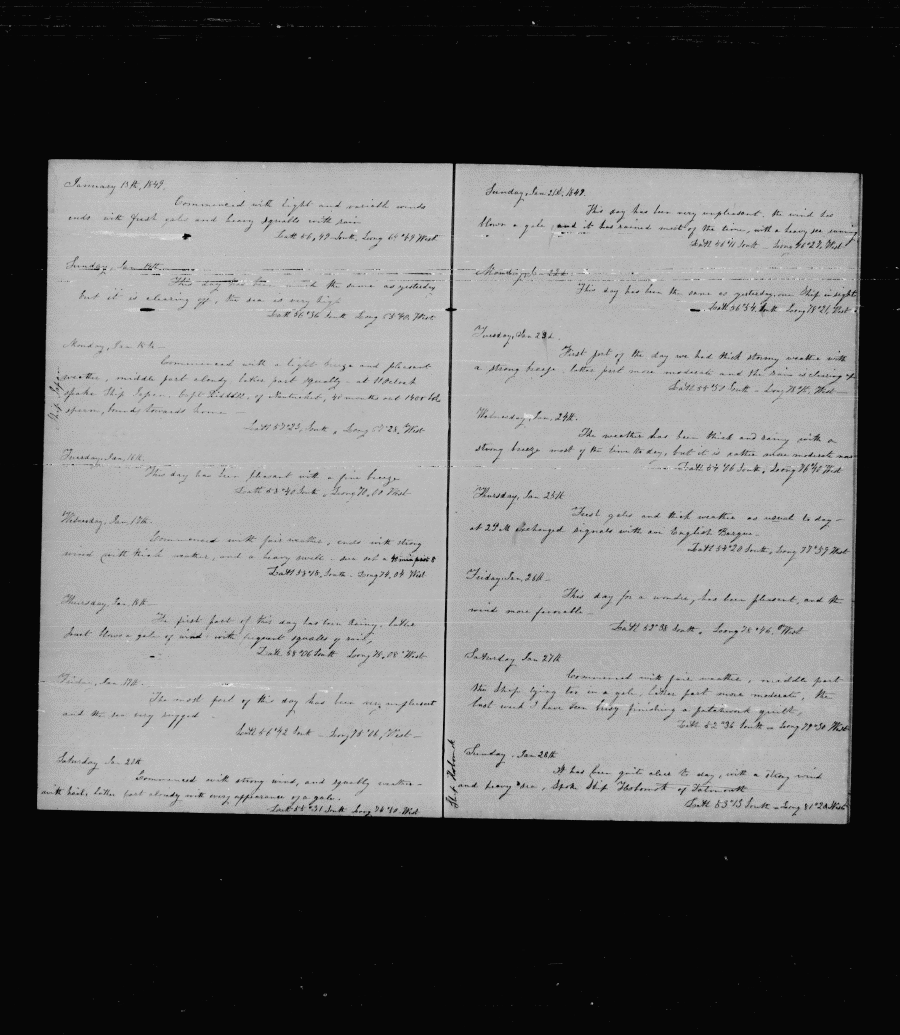 January 13th, 1849.
Commenced with light and variable winds
ends with fresh gales and heavy squalls with rain
Latt 56,49 South, Long 64°49 West
Sunday, Jan 14th
This day has been the same as yesterday
but it is clearing up, the sea is very high
Latt 56°36 South Long 63°40, West
Monday, Jan 15th
Commenced with a light breeze and pleasant
weather, middle part cloudy latter part squally. at 11 Oclock
spoke Ship Japan, Capt of Nantucket, months out 1400 bbls
sperm, bounds towards home
Latt 57°23, South, Long 28, West
Tuesday, Jan, 16th,
This day has been pleasant with a fine breeze
Latt 58°40 South, Long 70,00 West
Wednesday, Jan, 17th.
Commenced with fair weather, ends with strong
wind with thick weather, and a heavy swell
Latt 58°18, South Long 74,04 West
Thursday, Jan, 18th
The first part of this day has been rainy, latter
part blows a gale of wind with frequent squalls of rain,
Latt 58°06 South Long 76,08 West
Friday, Jan 19th.
The most part of this day has been very unpleasent
and the sea very rugged
Latt 56°42 South Long 76°06, West
Saturday Jan 20th
Commenced with strong wind, and squally weather
with hail, latter part cloudy with every appearance of a gale.
Latt 55°31 South Long 76°30 West
Sunday, Jan 21st, 1849.
This day has been very unpleasent, the wind has
blown a gale, and it has rained most of the time, with a heavy sea running
Latt 56°11 South Long 78°27, West
Monday, Jan 22d
This day has been the same as yesterday, one Ship in sight
Latt 56°34 South Long 78°21, West
Tuesday, Jan 23d.
First part of the day we had thick stormy weather with
a strong breeze, latter part more moderate and the rain is clearing up
Latt 55°50 South Long 78 West
Wednesday, Jan, 24th.
The weather has been thick and rainy with a
strong breeze most of the time to day, but it is rather more moderate now
Latt 54°06 South, Long 76°40 West
Thursday, Jan 25th
Fresh gales and thick weather as usual to day
at 2 P M Exchanged signals with an English Barque.
Latt 54°20 South, Long 77°59 West
Friday, Jan, 26th
This day for a wonder, has been pleasent, and the
wind more favorable
Latt 52°38 South, Long 78°46, West
Saturday Jan 27th
Commenced with fair weather, middle part
the Ship lying too in a gale, latter part more moderate, the
last week I have been busy finishing a patchwork quilt,
Latt 52°36 South Long 79°30 West
Sunday, Jan 28th
It has been quite clear to day, with a strong wind
and heavy sea, Spoke Ship of Falmouth
Latt 53°13 South Long 81°20 West